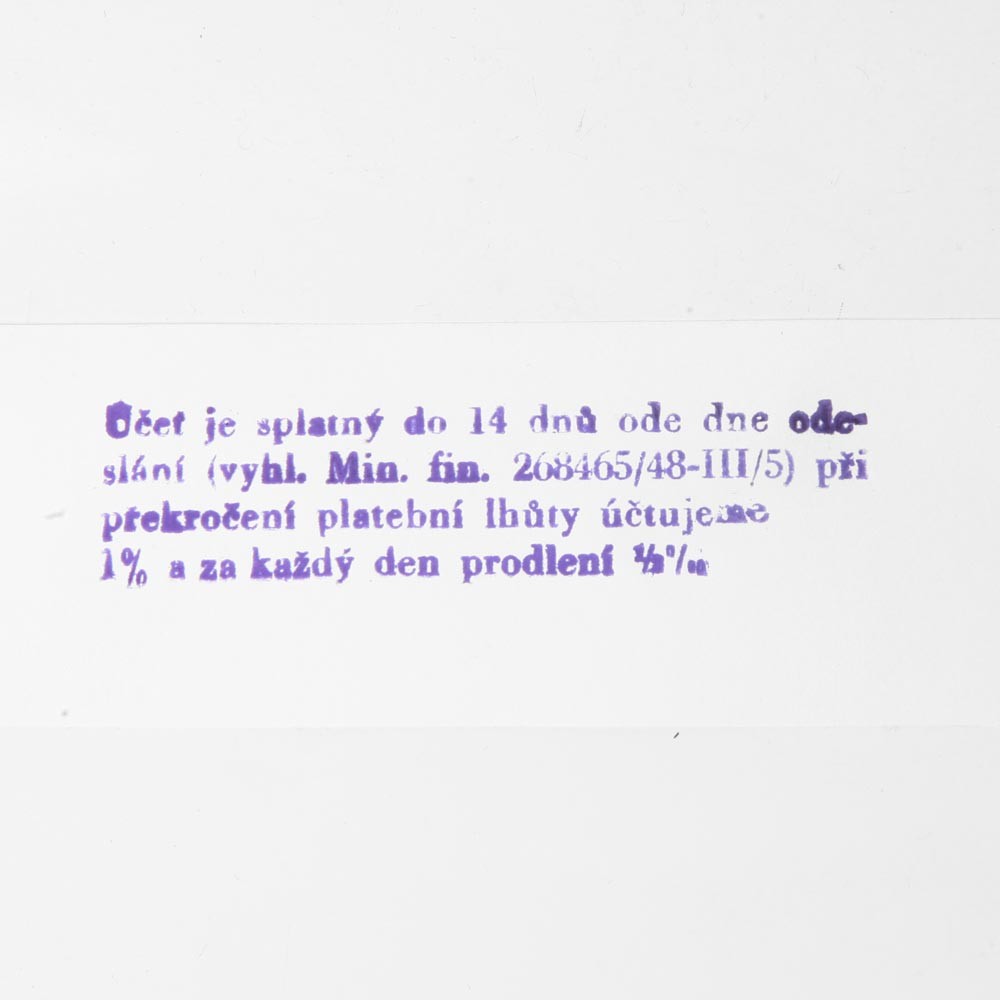 Účet je splatný do 14 dnů ode dne ode-
slání (vyhl. Min. fin. 268465/48-III/5) při
překročení platební lhůty účtujeme
1% a za každý den prodlení